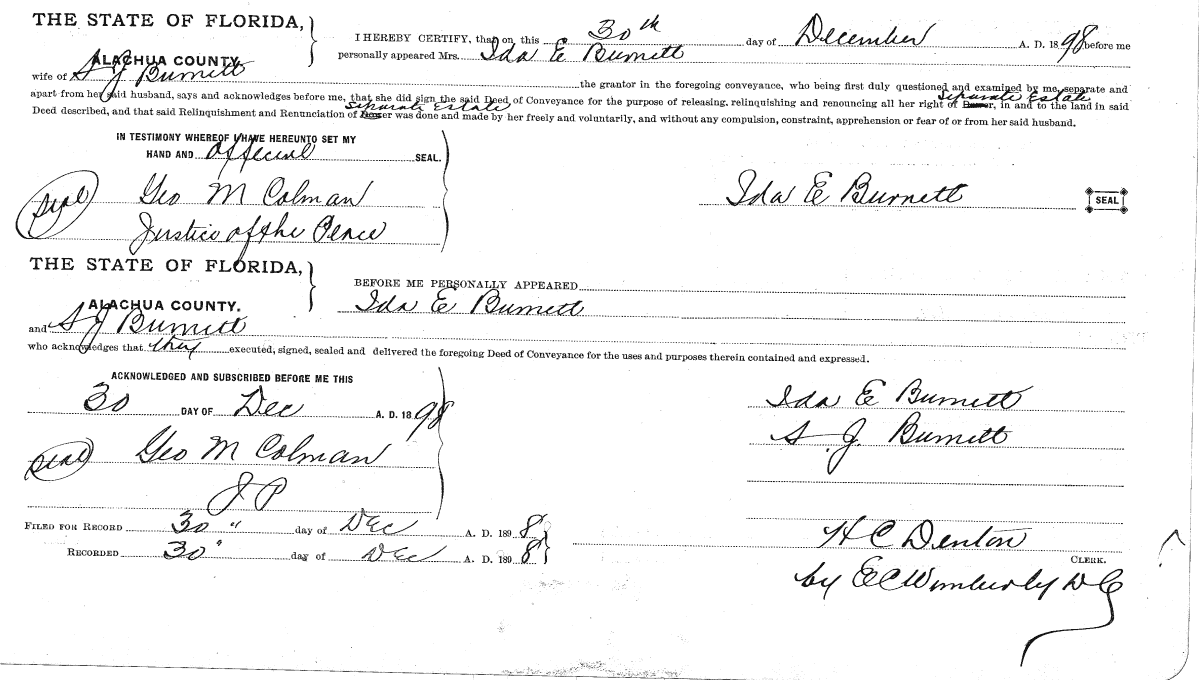 THE STATE OF FLORIDA,
ALACHUA COUNTY.
I HEREBY CERTIFY, that on, this 30th day of December A. D. 1898 before me
personally appeared Mrs. Ida E Burnett
wife of S J Burnett the grantor in the foregoing conveyance, who being first duly questioned and examined by me, separate and
apart from her said husband, says and acknowledges before me, that she did sign the said Deed of Conveyance for the purpose of releasing, relinquishing and renouncing all her right of Separate Estate, in and to the land in said
Deed described, and that said Relinquishment and Renunciation of Separate Estate was done and made by her freely and voluntarily, and without any compulsion, constraint, apprehension or fear of or from her said husband.
IN TESTIMONY WHEREOF I HAVE HEREUNTO SET MY
HAND AND official SEAL.
Seal Geo M Colman
Ida E Burnett SEAL
Justice of the Peace
THE STATE OF FLORIDA,
ALACHUA COUNTY.
BEFORE ME PERSONALLY APPEARED
Ida E Burnett
and S J Burnett
who acknowledges that they executed, signed, sealed and delivered the foregoing Deed of Conveyance for the uses and purposes therein contained and expressed.
ACKNOWLEDGED AND SUBSCRIBED BEFORE ME THIS
30 DAY OF Dec A. D. 1898
Ida E Burnett
S. J. Burnett
Seal Geo M Colman
J P
FILED FOR RECORD 30 " day of Dec A. D. 1898
RECORDED 30 " day of Dec A. D. 1898
H C Denton
CLERK.
by E C Wimberly D C